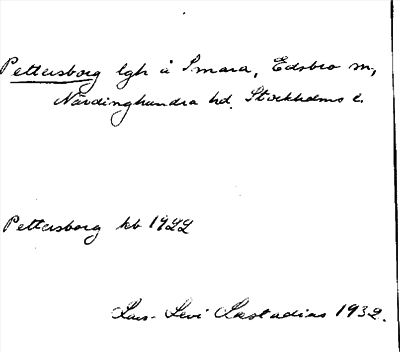 Pettersborg lgh å Smara, Edsbro sn,
Närdinghundra hd. Stockholms l.
Pettersborg kb 1922
Lars-Levi Læstadius 1932.